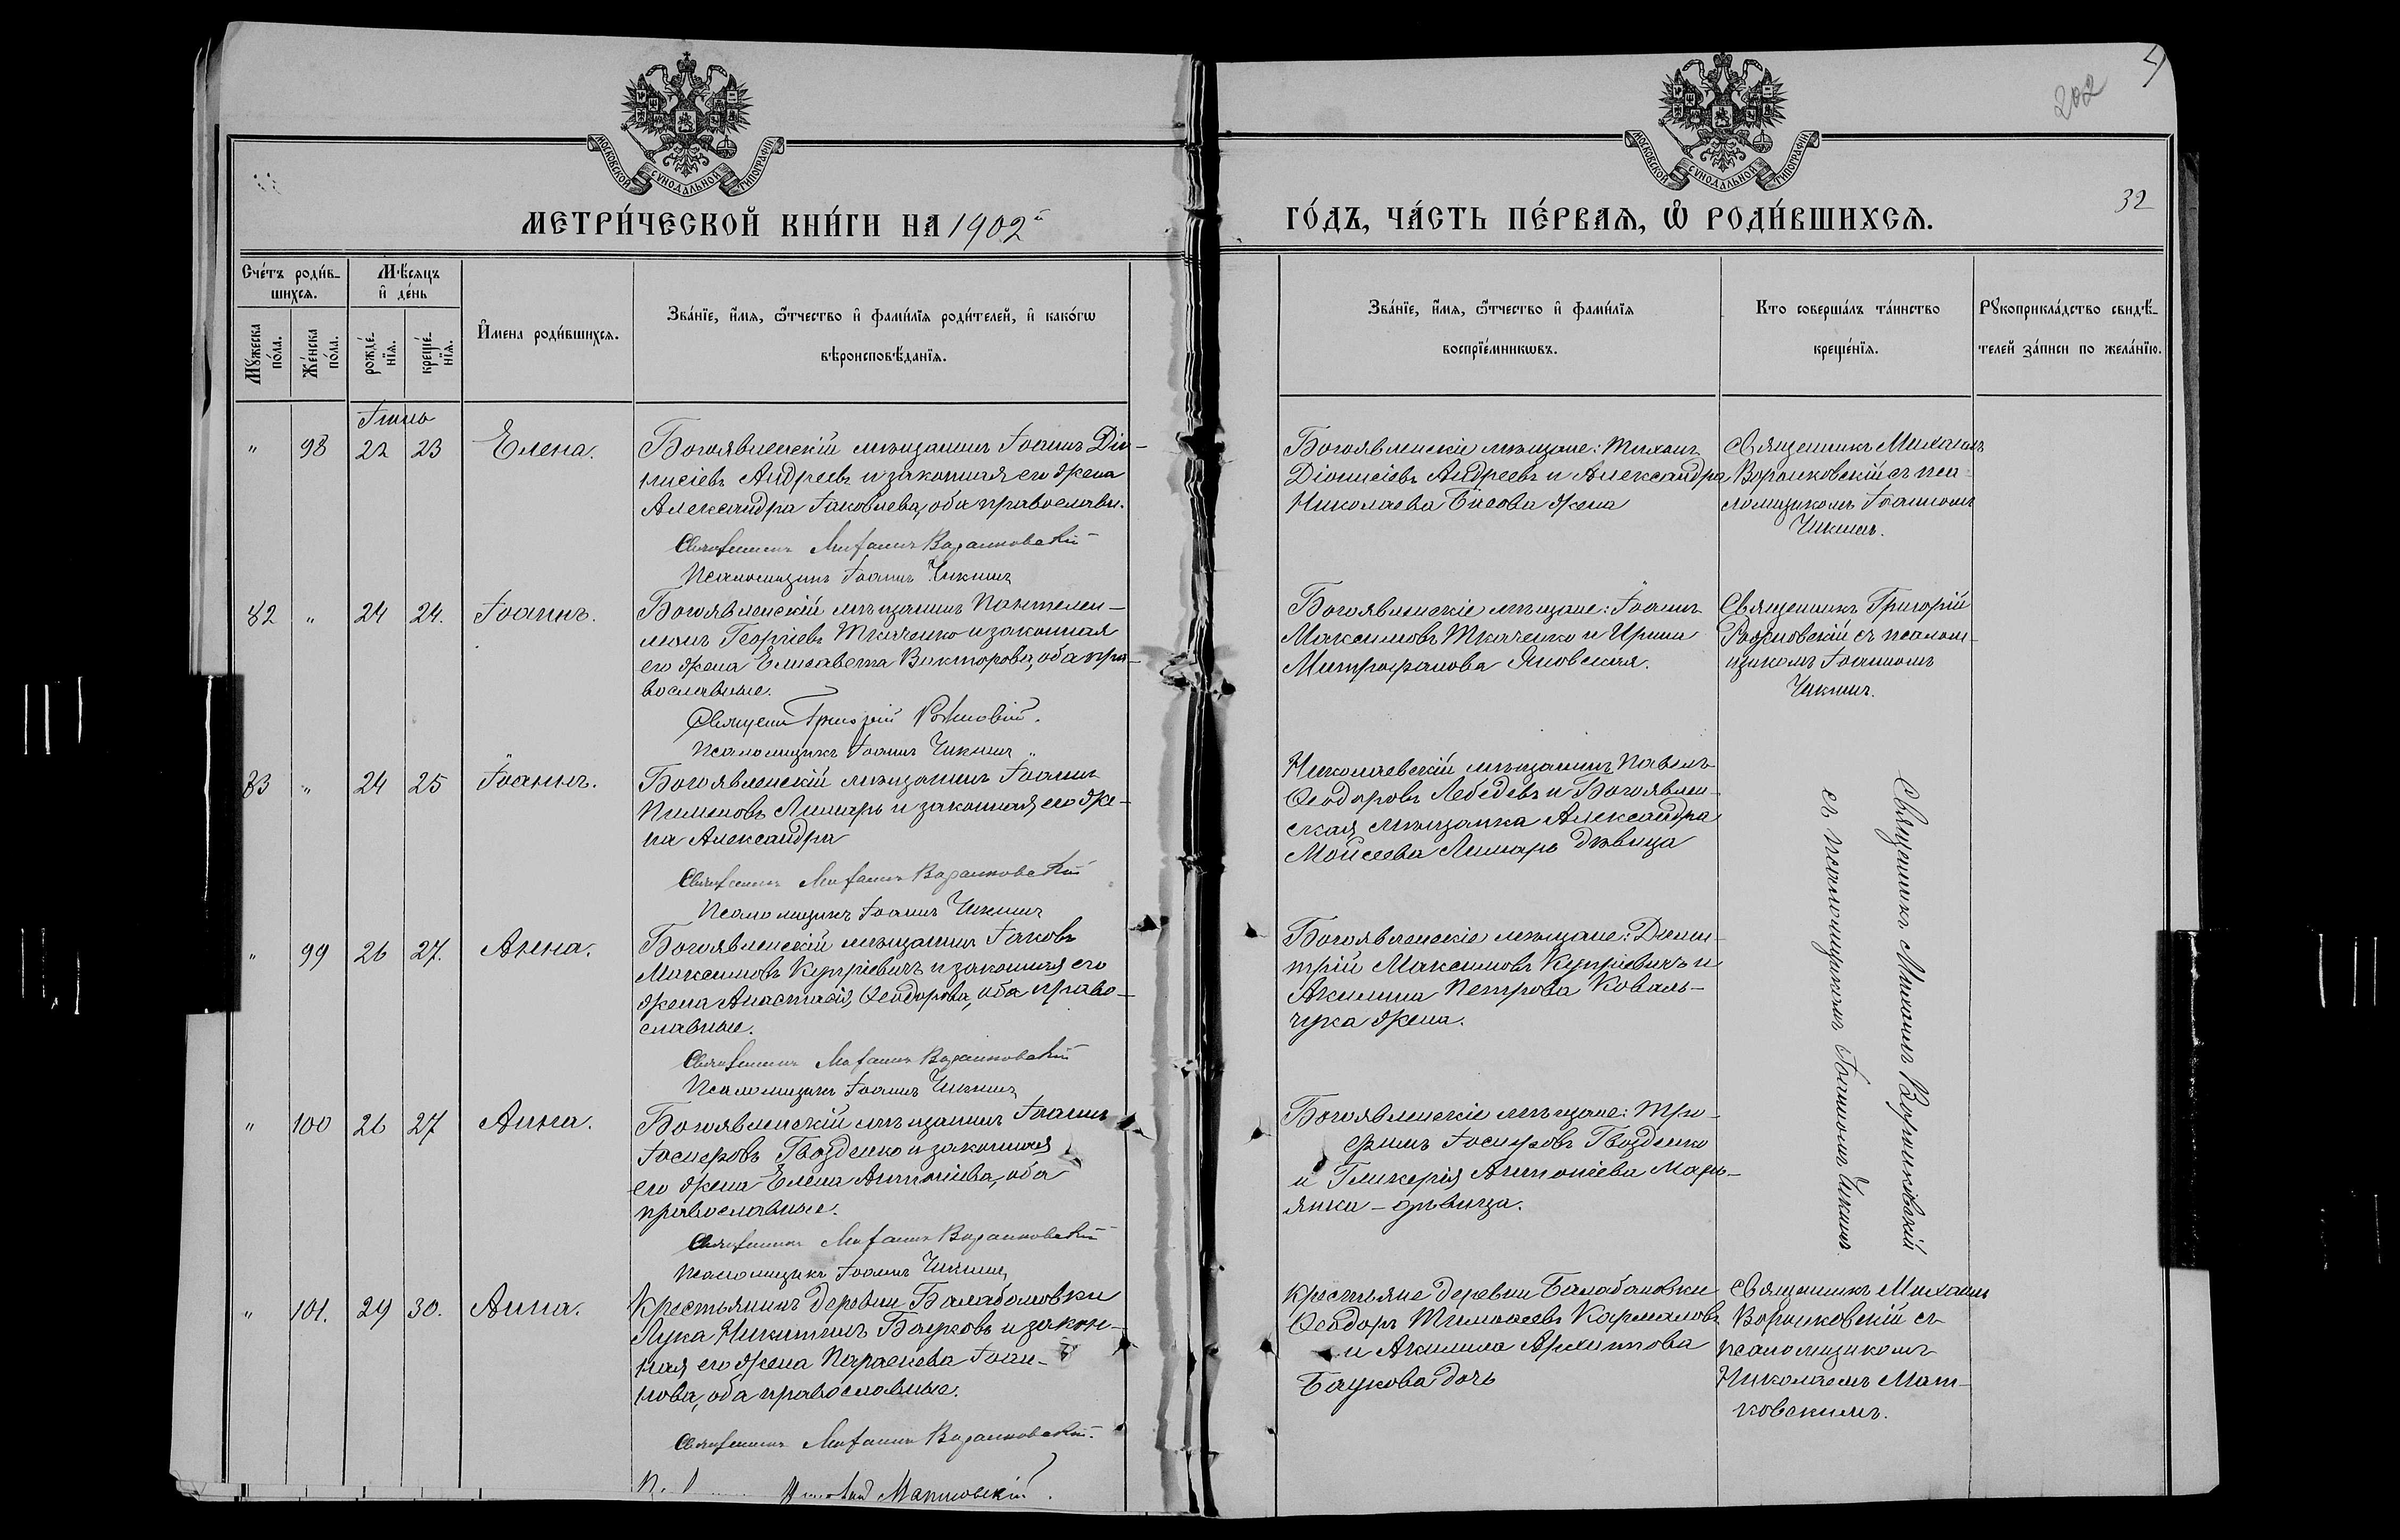 202
32
МОСКОВСКОЙ СѴНОДАЛЬНОЙ ТИПОГРАФІИ
МОСКОВСКОЙ СѴНОДАЛЬНОЙ ТИПОГРАФІИ
МЕТРИ́ЧЕСКОЙ КНИ́ГИ НА 1902й
ГО́ДЪ, ЧА́СТЬ ПЕ́РВАЯ, Ѡ РОДИ́ВШИХСЯ.
Сче́тъ роди́в-
шихся.
Мѣсяцъ
и де́нь
Мꙋжеска
по́ла.
Же́нска
по́ла.
рожде́-
нїя.
креще́-
нїя.
Имена роди́вшихся.
Зва́нїе, имя, ѿтчество и фами́лїя роди́телей, и како́гѡ
вѣроисповѣданїя.
Зва́нїе, имя, ѿтчество и фами́лїя
воспрїе́мникѡвъ.
Кто соверша́лъ та́инство
креще́нїя.
Рꙋкоприкла́дство свидѣ-
телей за́писи по жела́нїю.
Іюнь
" 98 22 23 Елена.
Богоявленскій мѣщанинъ Іоаннъ Діо-
нисіевъ Андреевъ и законная его жена
Александра Іаковлева, оба православн.
Священникъ Михаилъ Воронковскій
Псаломщикъ Іоаннъ Чикинъ
Богоявленскіе мѣщане: Тихонъ
Діонисіевъ Андреевъ и Александра
Николаева жена
Священникъ Михаилъ
Воронковскій съ пса-
ломщикомъ Іоанномъ
Чикинъ.
82 " 24 24. Іоаннъ.
Богоявленскій мѣщанинъ Пантелеи-
монъ Георгіевъ Ткаченко и законная
его жена Елисавета Викторова, оба пра-
вославные.
Священ Григорій Рожновскій.
Псаломщикъ Іоаннъ Чикинъ
Богоявленскіе мѣщане: Іоаннъ
Максимовъ Ткаченко и Ирина
Митрофанова Яновская.
Священникъ Григорій
Рожновскій съ псалом-
щикомъ Іоанномъ
Чикинъ.
83 " 24 25 Іоаннъ.
Богоявленскій мѣщанинъ Іоаннъ
Пименовъ Лимарь и законная его же-
на Александра
Священникъ Михаилъ Воронковскій
Псаломщикъ Іоаннъ Чикинъ
Николаевскій мѣщанинъ Павелъ
Ѳеодоровъ Лебедевъ и Богоявлен-
ская мѣщанка Александра
Моисеева Лимарь дѣвица
Священникъ Михаилъ Воронковскій
съ псаломщикомъ Іоанномъ Чикинъ
" 99 26 27. Анна.
Богоявленскій мѣщанинъ Іаковъ
Максимовъ Купріевичъ и законная его
жена Анастасія Ѳеодорова, оба право-
славные.
Священникъ Михаилъ Воронковскій
Псаломщикъ Іоаннъ Чикинъ
Богоявленскіе мѣщане: Дими-
трій Максимовъ Купріевичъ и
Акилина Петрова Коваль-
чука жена.
" 100 26 27 Анна.
Богоявленскій мѣщанинъ Іоаннъ
Іосифовъ Гвозденко и законная
его жена Елена Антоніева, оба
православные.
Священникъ Михаилъ Воронковскій
Псаломщикъ Іоаннъ Чикинъ
Богоявленскіе мѣщане: Три-
фонъ Іосифовъ Гвозденко
и Гликерія Антоніева Марь-
янка - дѣвица.
" 101. 29 30. Анна.
Крестьянинъ деревни Балабановки
Лука Никитинъ Баурковъ и закон-
ная его жена Параскева Іоан-
нова, оба православные.
Священникъ Михаилъ Воронковскій.
Матковскій.
Крестьяне деревни Балабановки
Ѳеодоръ Тимоѳеевъ Кармановъ
и Акилина Архиппова
Баукова дочь
Священникъ Михаилъ
Воронковскій съ
псаломщикомъ
Николаемъ Мат-
ковскимъ.